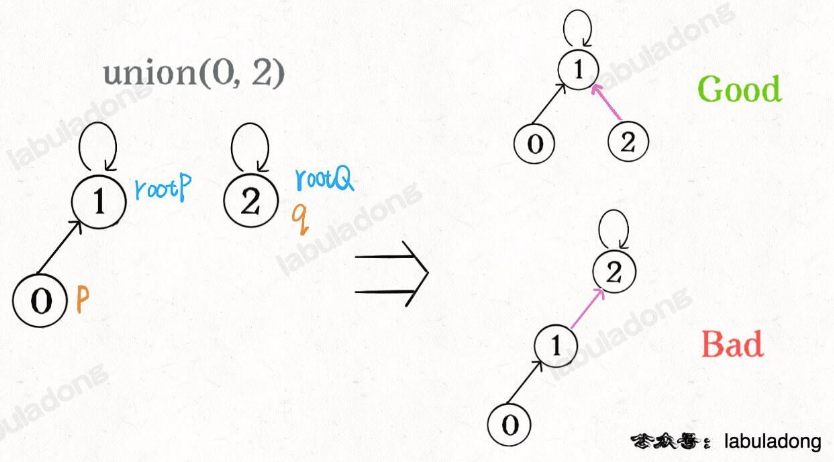 union(0, 2)
1
rootP
2
rootQ
q
0
p
1
Good
0
2
2
1
Bad
0
公众号：labuladong
labuladong
labuladong
labuladong
labuladong
labuladong